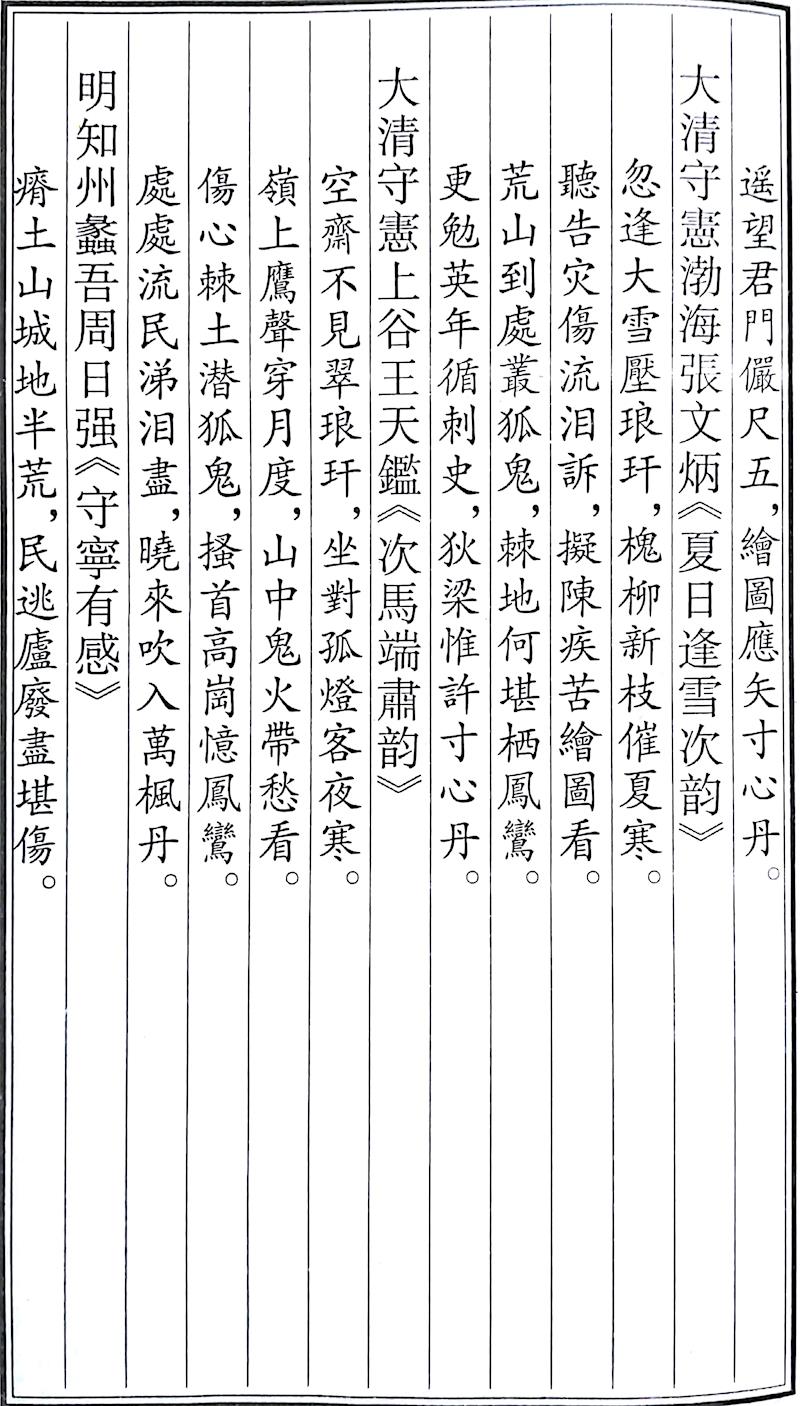 遥望君門儼尺五，繪圖應矢寸心丹。
大清守憲渤海張文炳《夏日逢雪次韵》
忽逢大雪壓琅玕，槐柳新枝催夏寒。
聽告灾傷流泪訴，擬陳疾苦繪圖看。
荒山到處叢狐鬼，棘地何堪栖鳳鸞。
更勉英年循刺史，狄梁惟許寸心丹。
大清守憲上谷王天鑑《次馬端肅韵》
空齋不見翠琅玕，坐對孤燈客夜寒。
嶺上鷹聲穿月度，山中鬼火帶愁看。
傷心棘土潜狐鬼，搔首高崗憶鳳鸞。
處處流民涕泪盡，曉來吹入萬楓丹。
明知州蠡吾周日强《守寧有感》
瘠土山城地半荒，民逃廬廢盡堪傷。